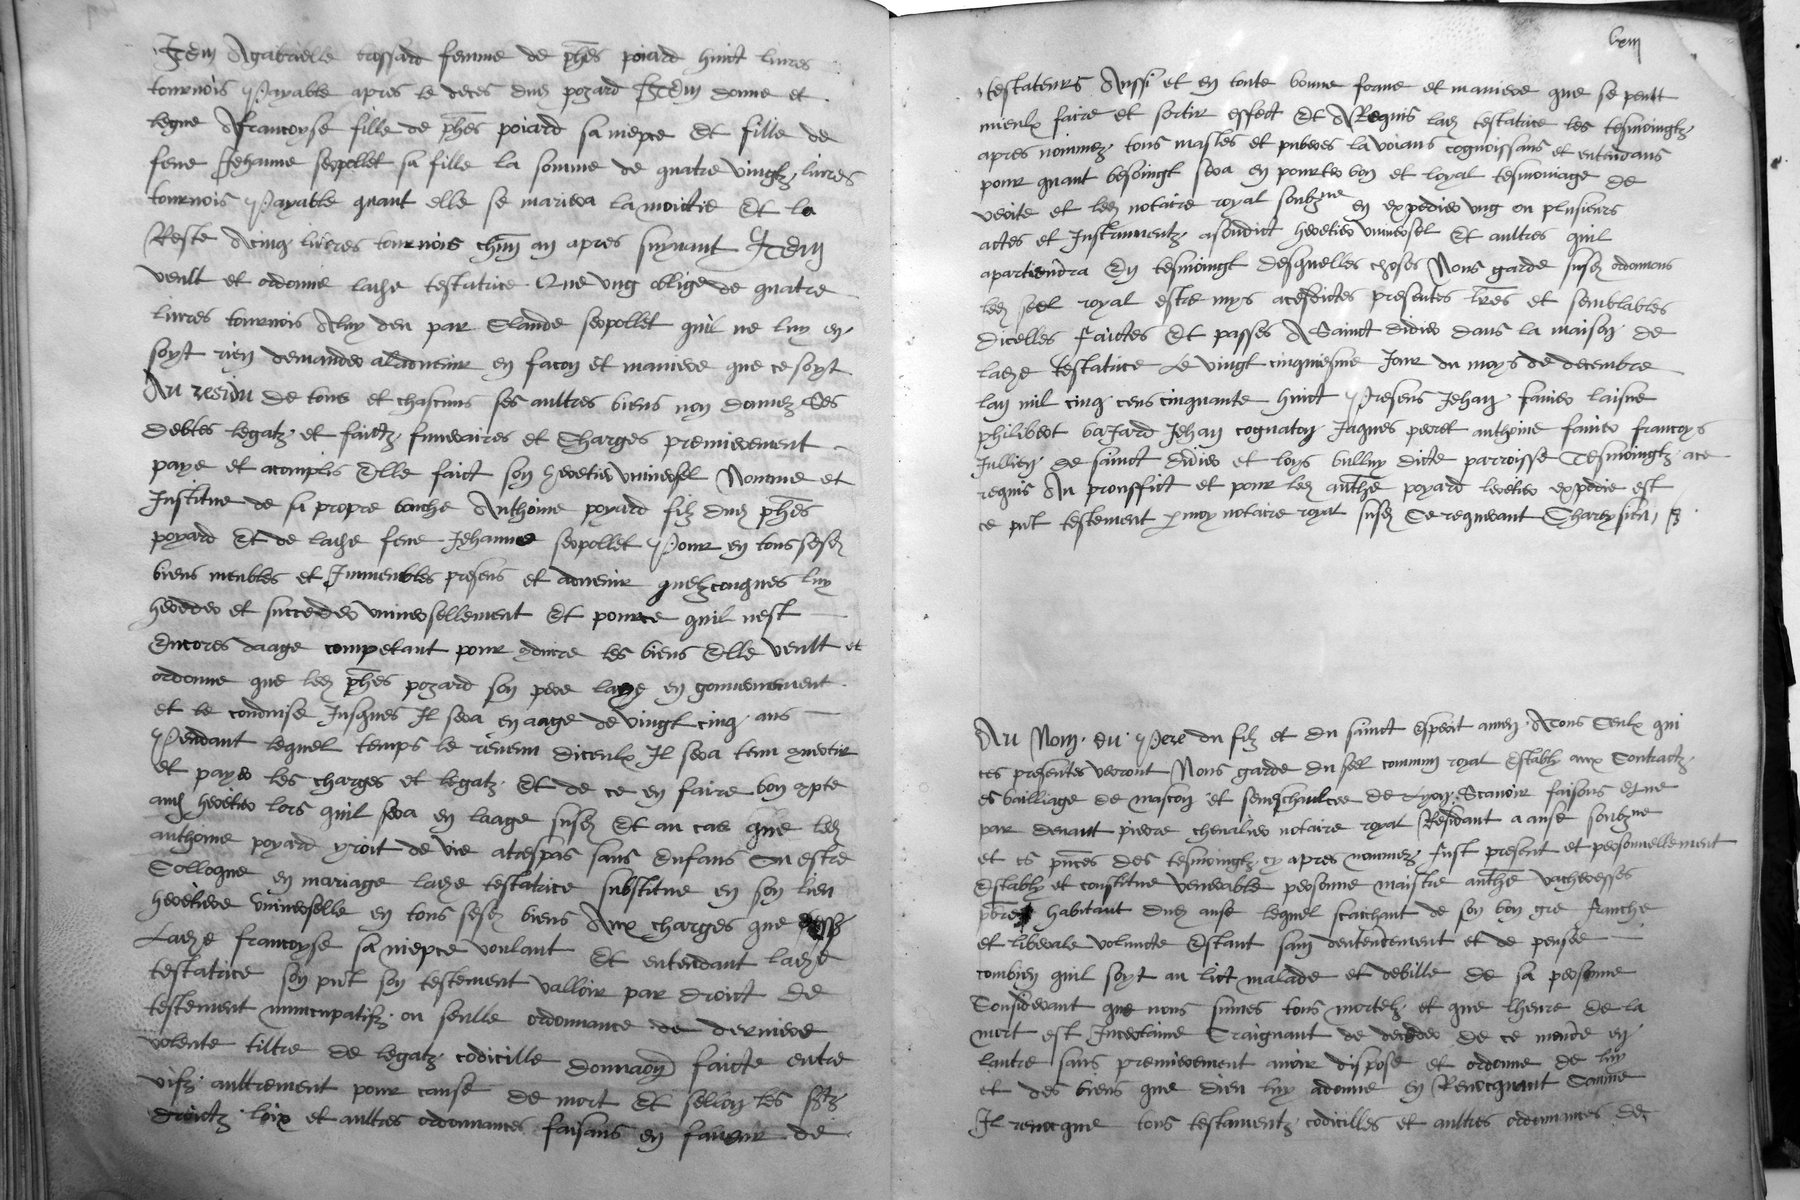 Item A gabrielle brossard femme de phes poiard huict livres
tournois payable apres le deces dud pozard Item donne et
legue A francoyse fille de phes poiard sa niepce Et fille de
feue Jehanne seopollet sa fille la somme de quatre vingtz livres
tournois payable quant elle se mariera la moictie Et le
Reste A cinq livres tournois chun an apres suyvant Item
veult et ordonne ladte testatrice Que ung oblige de quatre
livres tournois A luy deu par Claude seopollet quil ne luy en
soyt rien demander al advenir en facon et maniere que ce soyt
Au residu de tous et chascuns ses aultres biens non donnez Ses
debtes legatz et faictz funeraires et Charges premierement
paye et acomplis Elle faict son heretier universel Nomme et
Institue de sa propre bouche Anthoine poyard filz dud phes
poyard Et de ladte feue Jehanne seopollet Pour en tous sesd
biens meubles et Immeubles presens et advenir quelzconques luy
hereder et succeder universellement Et pource quil nest
Encores daage competant pour conduire les biens Elle veult et
ordonne que led phes pozard son pere laye en gouvernement
et le conduise Jusques Il sera en aage de vingt cinq ans
Pendant lequel temps le revenu diceulx Il sera tenu convertir
et payer les charges et legatz Et de ce en faire bon compte
aud heretier lors quil sera en laage susd Et au cas que led
anthoine poyard yroit de vie a trespas sans Enfans Ou estre
Colloque en mariage ladte testatrice substitue en son lieu
heretiere universelle en tous sesd biens Aux charges que
Ladte francoyse sa niepce voulant Et entendant ladte
testatrice son pnt son testement valloir par droict de
testement nuncupatifz ou seulle ordonnance de derniere
volente tiltre de legatz codicille donnaon faicte entre
vifz aultrement pour cause de mort Et selon les sstz
droictz loix et aultres ordonnances faisans en faveur de
lxiij
testateurs Aussi et en toute bonne forme et maniere que se peult
mieulx faire et sortir effect Et A Requis lad testatrice les tesmoingtz
apres nommez tous masles et puberes la voians cognoissans et entendans
pour quant besoingt sera en pourter bon et loyal tesmoniage de
verite et led notaire royal soubzne en expedier ung ou plusieurs
actes et Instrumentz a sondict heretier universel Et aultres quil
apartiendra En tesmoingt desquelles choses Nous garde susd ordonnons
led seel royal estre mys a cesdictes presentes lres et semblables
dicelles faictes Et passes A Sainct didier dans la maison de
ladte testatrice Le vingt cinquiesme Jour du moys de decembre
lan mil cinq cens cinquante huict Presens Jehan favier laisne
philibert baJard Jehan cognaton Jaques peret anthoine favier francoys
Jullien de sainct didier et loys bulluy dicte parroisse Tesmoingtz a ce
requis Au prouffict et pour led anthe poyard heretier expedie est
ce pnt testement p moy notaire royal susd Ce requerant Chareysieu
Au Nom du Pere du filz et du sainct esperit amen A tous Ceulx qui
ces presentes verront Nous garde du seel commun royal Estably aux Contractz
es bailliage de mascon et seneschaulcee de Lyon Scavoir faisons que
par devant pierre chevalier notaire royal Residant a anse soubzne
et es pnces des tesmoingtz cy apres nommez fust present et personnellement
Estably et constitue venerable personne maistre anthe vacheresses
pbre habitant dud anse lequel scaichant de son bon gre franche
et liberale volunte Estant sain dentendement et de pensee
combien quil soyt au lict malade et debille de sa personne
Considerant que nous sumes tous mortelz et que lheure de la
mort est Incertaine Craignant de deceder de ce monde en
lautre sans premierement avoir dispose et ordonne de luy
et des biens que dieu luy a donne en Revocquant Comme
Il revocque tous testamentz codicilles et aultres ordonnances de